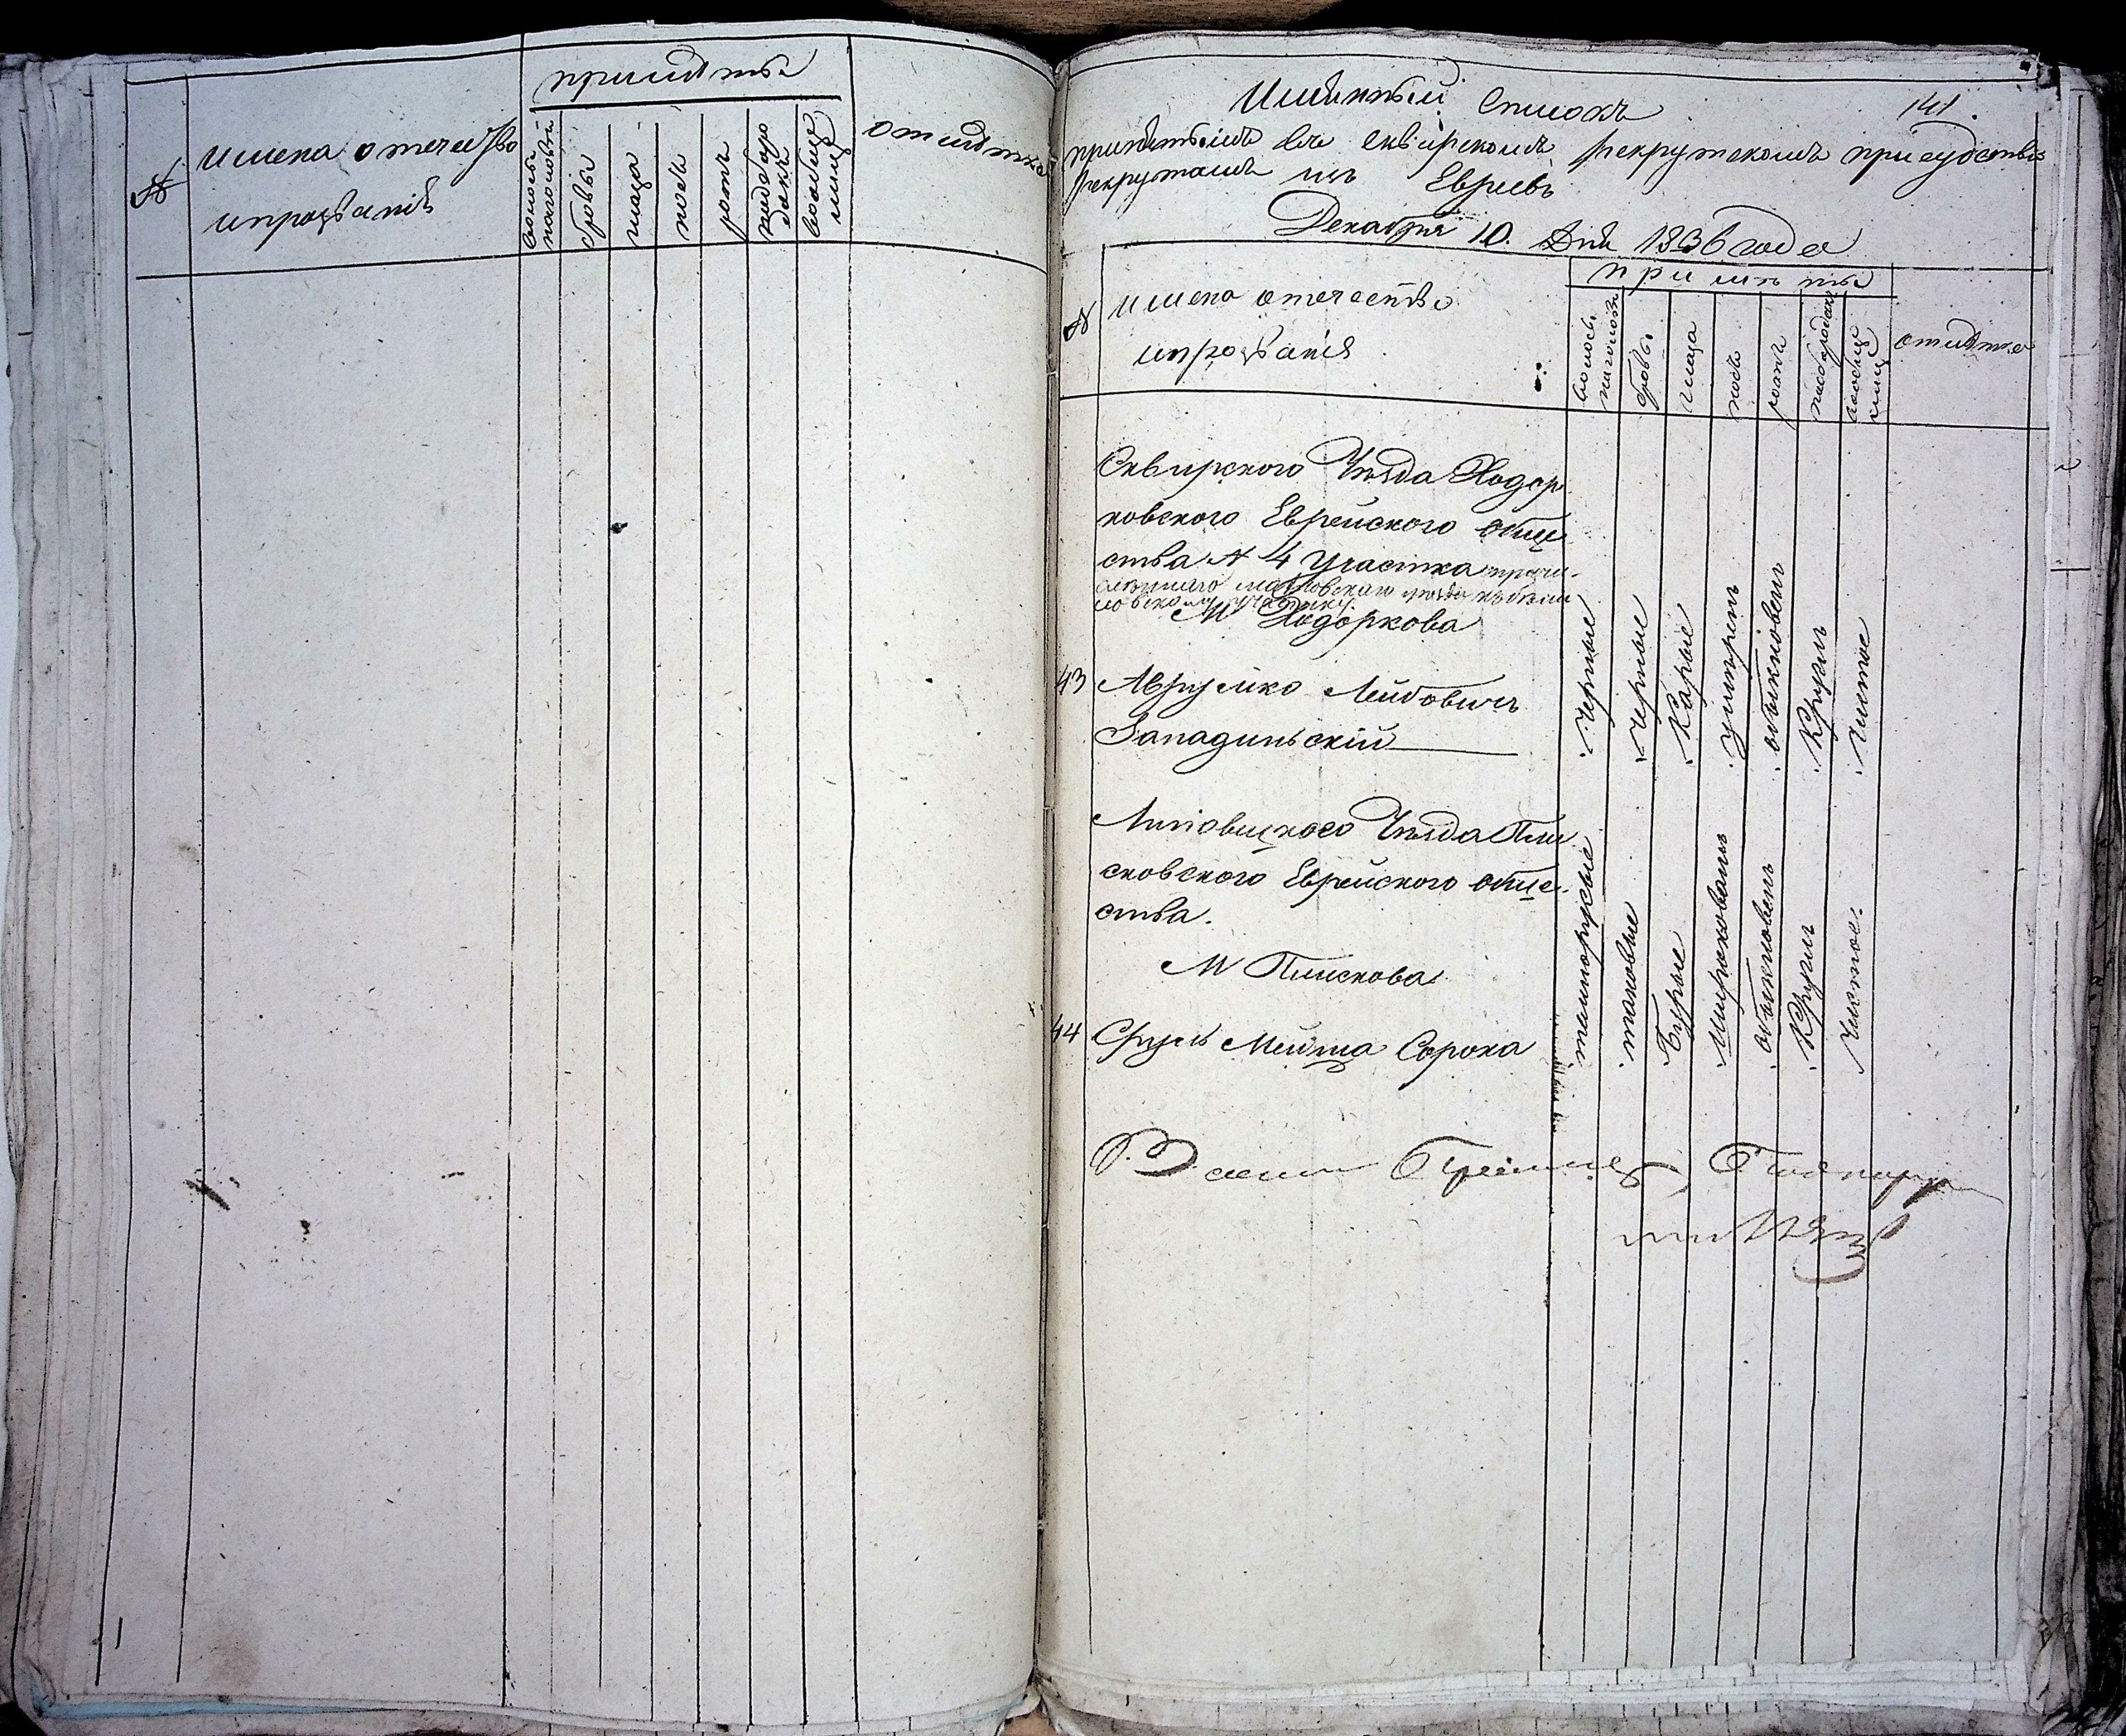 №
имена отечество
ипрозванiя
примѣты
волосы
наголовѣ
бровы
глаза
носъ
ротъ
подборо
докъ
вообще
лице
отмѣтка
Имянный Списокъ
141.
принятымъ въ сквирскомъ рекрутскомъ присудствіи
рекрутамъ изъ Евреевъ
Декабря 10. дня 1836 года
№
имена отечество
ипрозванiя
примѣты
волосы
наголовѣ
бровы
глаза
носъ
ротъ
подбородокъ
вообще
лице
отмѣтка
Сквирского Уѣзда Ходор
ковского Еврейского обще
ства № 4 Участка причи-
участку
М Ходоркова
43 Аврумко Лейбовичъ
Западиньскiй
Черные
Черные
Карые
умѣрен
обыкновен
Кругл
Чистое
Липовецкого Уѣзда Пли
сковского Еврейского обще
ства.
М Плискова
44 Сруль Мейша Сорока
темнорусые
таковые
Бурые
Широковатъ
обыкновенъ
Круглъ
Чистое.